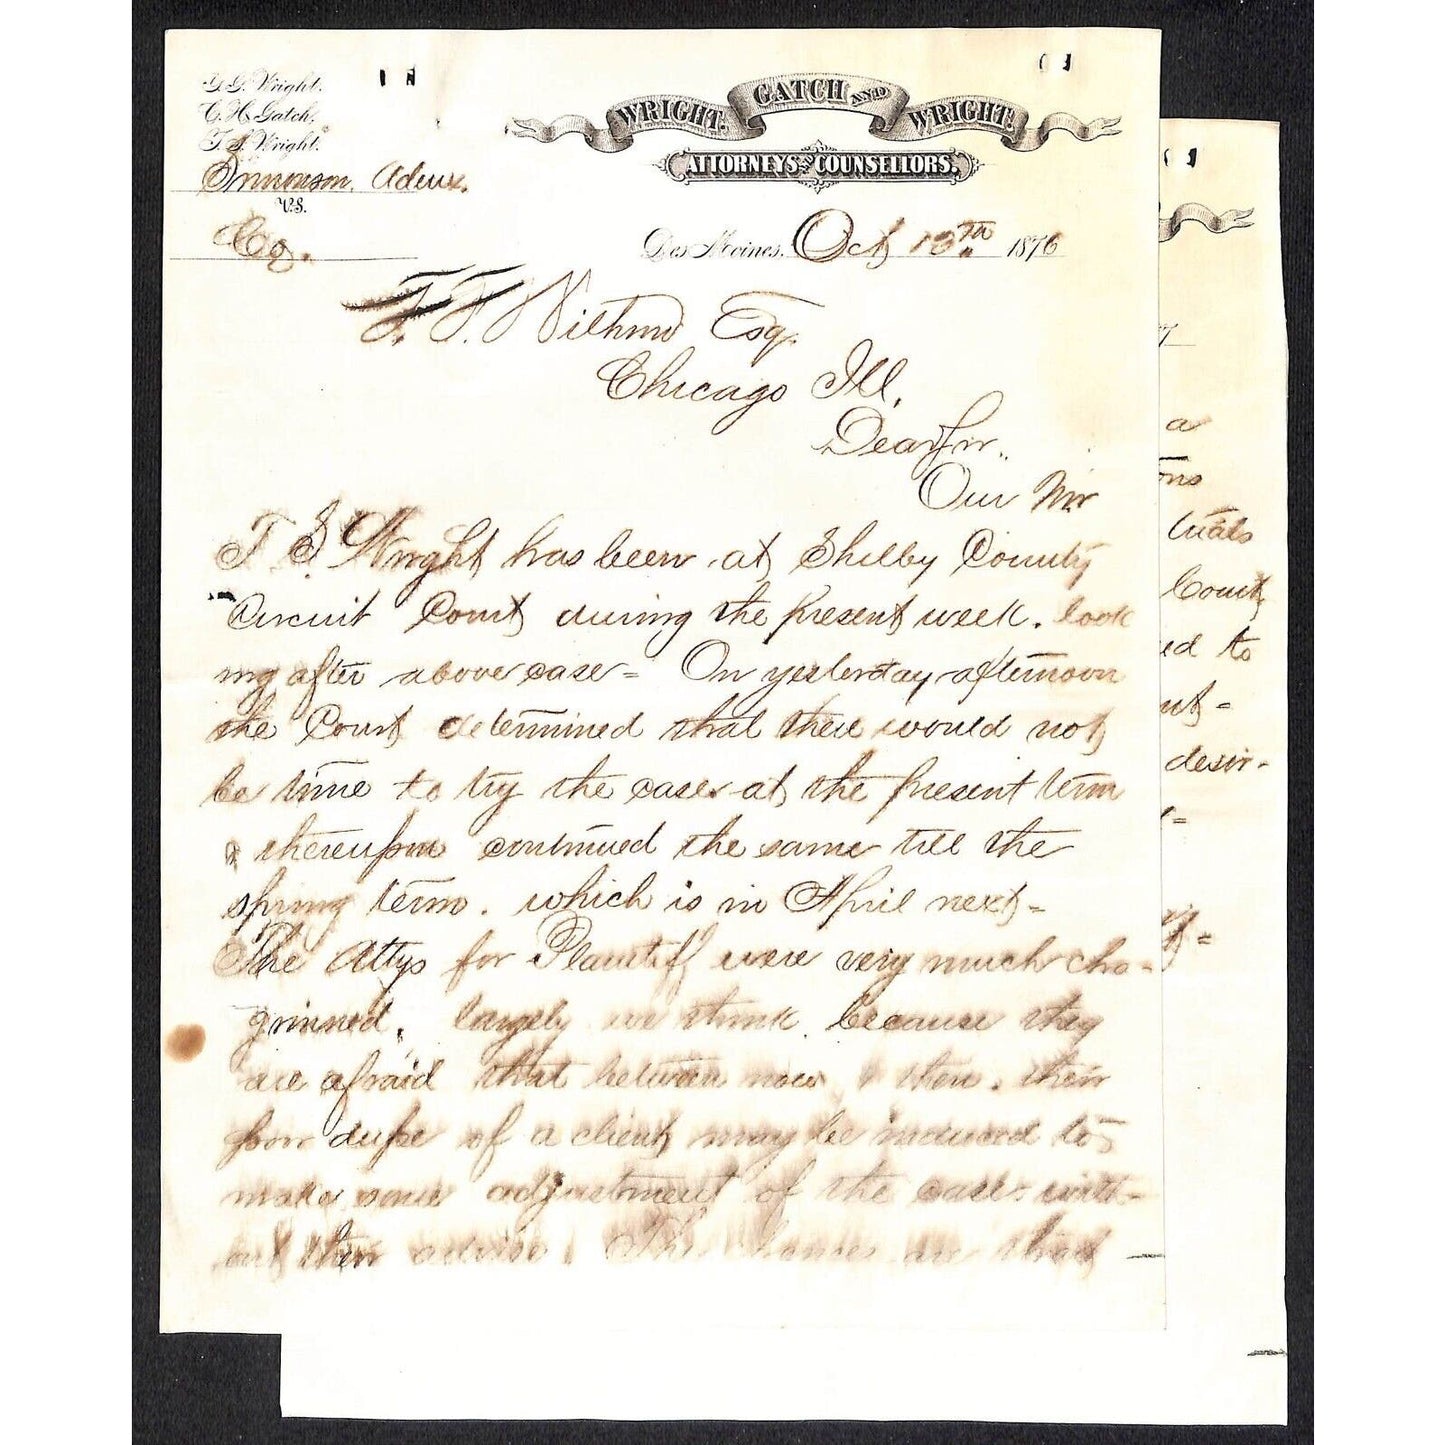 G. G. Wright.
C. H. Gatch.
T. S. Wright.
WRIGHT. GATCH AND WRIGHT.
ATTORNEYS AND COUNSELLORS.
Admx.
VS.
Co.
Des Moines, Oct 13th 1876
T. F. Withrow Esq.
Chicago Ill.
Dear Sir.
Our Mr
T S Wright has been at Shelby County
Circuit Court during the present week. look
ing after above case = On yesterday afternoon
the Court determined that there would not
be time to try the case at the present term
& thereupon continued the same till the
spring term. which is in April next =
The Attys for Plaintiff were very much cha-
grinned. largely we think because they
are afraid that between now & then. their
poor dupe of a client may be induced to
make some adjustment of the case with-
out their advice. The is that
a
ons
tuals
Court
ed to
nt =
desir-
=
=